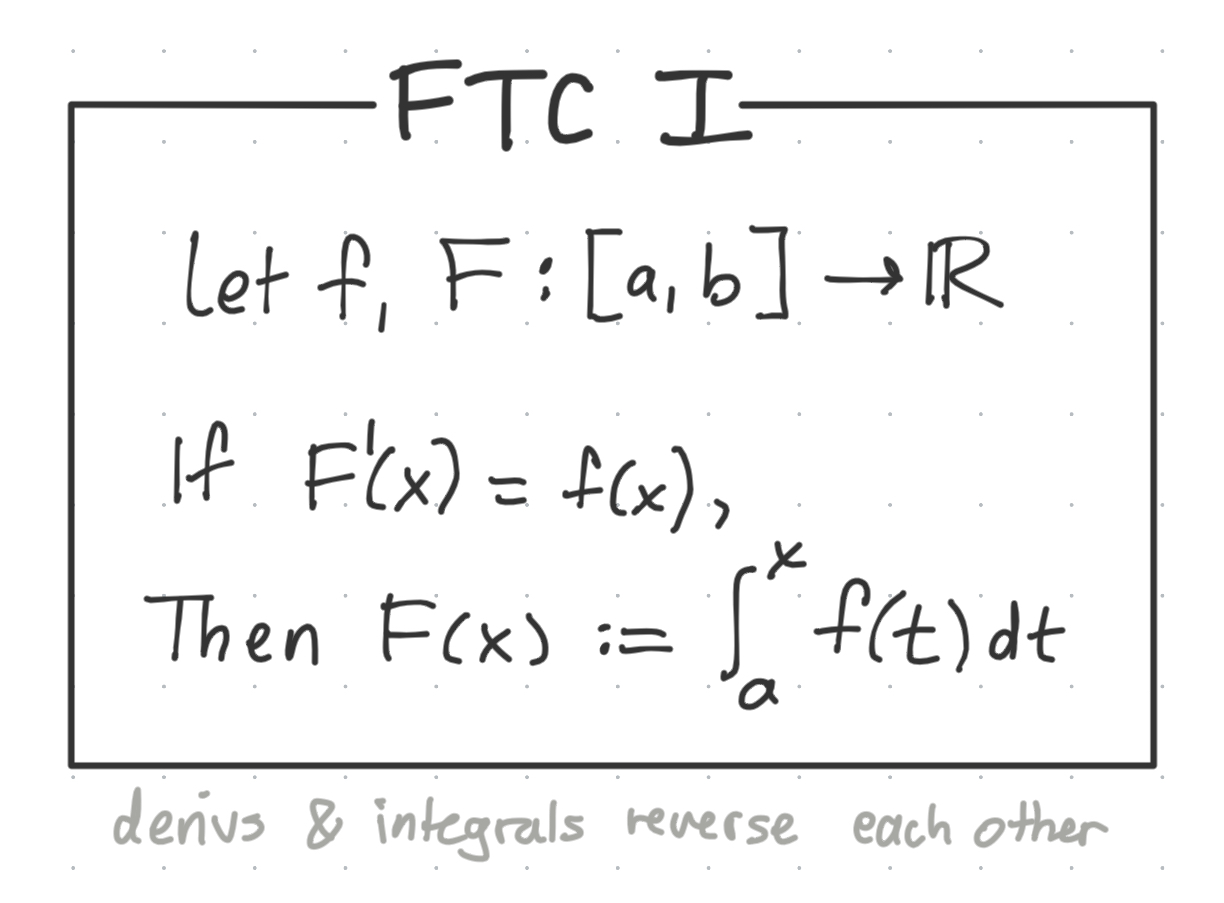 FTC I
Let f, F : [a, b] → ℝ
If F'(x) = f(x),
Then F(x) := ∫ₐˣ f(t) dt
derivs & integrals reverse each other